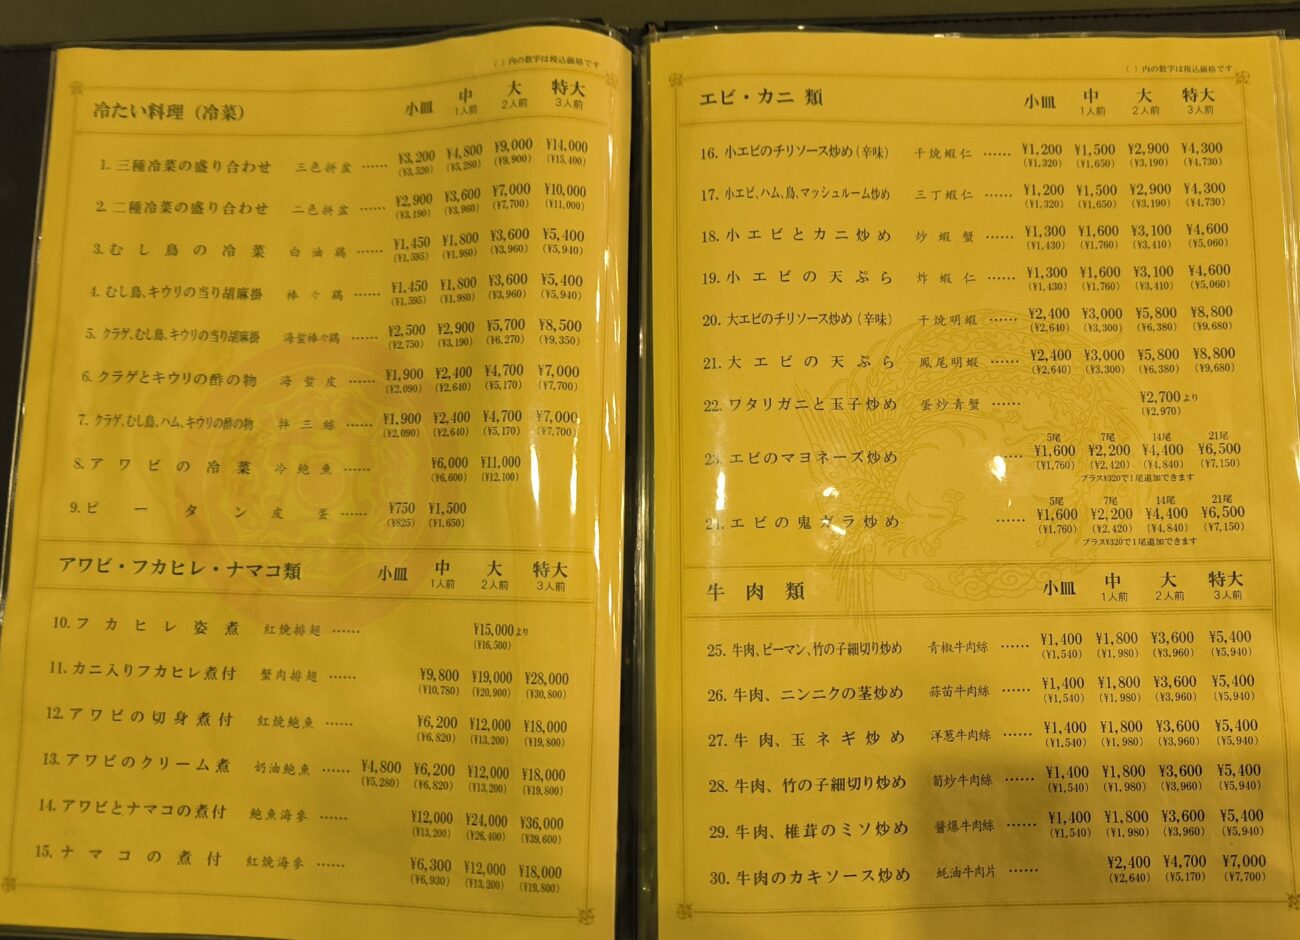 ( ) 内の数字は税込価格です
冷たい料理（冷菜） 小皿 中 1人前 大 2人前 特大 3人前
1. 三種冷菜の盛り合わせ 三色拼盆 …… ¥3,200 (¥3,520) ¥4,800 (¥5,280) ¥9,000 (¥9,900) ¥14,000 (¥15,400)
2. 二種冷菜の盛り合わせ 二色拼盆 …… ¥2,900 (¥3,190) ¥3,600 (¥3,960) ¥7,000 (¥7,700) ¥10,000 (¥11,000)
3. むし鳥の冷菜 白油鶏 …… ¥1,450 (¥1,595) ¥1,800 (¥1,980) ¥3,600 (¥3,960) ¥5,400 (¥5,940)
4. むし鳥、キウリの当り胡麻掛 棒々鶏 …… ¥1,450 (¥1,595) ¥1,800 (¥1,980) ¥3,600 (¥3,960) ¥5,400 (¥5,940)
5. クラゲ、むし鳥、キウリの当り胡麻掛 海蜇棒々鶏 …… ¥2,500 (¥2,750) ¥2,900 (¥3,190) ¥5,700 (¥6,270) ¥8,500 (¥9,350)
6. クラゲとキウリの酢の物 海蜇皮 …… ¥1,900 (¥2,090) ¥2,400 (¥2,640) ¥4,700 (¥5,170) ¥7,000 (¥7,700)
7. クラゲ、むし鳥、ハム、キウリの酢の物 拌三絲 …… ¥1,900 (¥2,090) ¥2,400 (¥2,640) ¥4,700 (¥5,170) ¥7,000 (¥7,700)
8. アワビの冷菜 冷鮑魚 …… ¥6,000 (¥6,600) ¥11,000 (¥12,100)
9. ピータン 皮蛋 …… ¥750 (¥825) ¥1,500 (¥1,650)
アワビ・フカヒレ・ナマコ類 小皿 中 1人前 大 2人前 特大 3人前
10. フカヒレ姿煮 紅焼排翅 …… ¥15,000より (¥16,500)
11. カニ入りフカヒレ煮付 蟹肉排翅 …… ¥9,800 (¥10,780) ¥19,000 (¥20,900) ¥28,000 (¥30,800)
12. アワビの切身煮付 紅焼鮑魚 …… ¥6,200 (¥6,820) ¥12,000 (¥13,200) ¥18,000 (¥19,800)
13. アワビのクリーム煮 奶油鮑魚 …… ¥4,800 (¥5,280) ¥6,200 (¥6,820) ¥12,000 (¥13,200) ¥18,000 (¥19,800)
14. アワビとナマコの煮付 鮑魚海參 …… ¥12,000 (¥13,200) ¥24,000 (¥26,400) ¥36,000 (¥39,600)
15. ナマコの煮付 紅焼海參 …… ¥6,300 (¥6,930) ¥12,000 (¥13,200) ¥18,000 (¥19,800)
( ) 内の数字は税込価格です
エビ・カニ類 小皿 中 1人前 大 2人前 特大 3人前
16. 小エビのチリソース炒め（辛味） 干焼蝦仁 …… ¥1,200 (¥1,320) ¥1,500 (¥1,650) ¥2,900 (¥3,190) ¥4,300 (¥4,730)
17. 小エビ、ハム、鳥、マッシュルーム炒め 三丁蝦仁 …… ¥1,200 (¥1,320) ¥1,500 (¥1,650) ¥2,900 (¥3,190) ¥4,300 (¥4,730)
18. 小エビとカニ炒め 炒蝦蟹 …… ¥1,300 (¥1,430) ¥1,600 (¥1,760) ¥3,100 (¥3,410) ¥4,600 (¥5,060)
19. 小エビの天ぷら 炸蝦仁 …… ¥1,300 (¥1,430) ¥1,600 (¥1,760) ¥3,100 (¥3,410) ¥4,600 (¥5,060)
20. 大エビのチリソース炒め（辛味） 干焼明蝦 …… ¥2,400 (¥2,640) ¥3,000 (¥3,300) ¥5,800 (¥6,380) ¥8,800 (¥9,680)
21. 大エビの天ぷら 鳳尾明蝦 …… ¥2,400 (¥2,640) ¥3,000 (¥3,300) ¥5,800 (¥6,380) ¥8,800 (¥9,680)
22. ワタリガニと玉子炒め 蛋炒青蟹 …… ¥2,700より (¥2,970)
23. エビのマヨネーズ炒め …… 5尾 ¥1,600 (¥1,760) 7尾 ¥2,200 (¥2,420) 14尾 ¥4,400 (¥4,840) 21尾 ¥6,500 (¥7,150)
プラス¥320で1尾追加できます
24. エビの鬼ガラ炒め …… 5尾 ¥1,600 (¥1,760) 7尾 ¥2,200 (¥2,420) 14尾 ¥4,400 (¥4,840) 21尾 ¥6,500 (¥7,150)
プラス¥320で1尾追加できます
牛肉類 小皿 中 1人前 大 2人前 特大 3人前
25. 牛肉、ピーマン、竹の子細切り炒め 青椒牛肉絲 …… ¥1,400 (¥1,540) ¥1,800 (¥1,980) ¥3,600 (¥3,960) ¥5,400 (¥5,940)
26. 牛肉、ニンニクの茎炒め 蒜苗牛肉絲 …… ¥1,400 (¥1,540) ¥1,800 (¥1,980) ¥3,600 (¥3,960) ¥5,400 (¥5,940)
27. 牛肉、玉ネギ炒め 洋葱牛肉絲 …… ¥1,400 (¥1,540) ¥1,800 (¥1,980) ¥3,600 (¥3,960) ¥5,400 (¥5,940)
28. 牛肉、竹の子細切り炒め 筍炒牛肉絲 …… ¥1,400 (¥1,540) ¥1,800 (¥1,980) ¥3,600 (¥3,960) ¥5,400 (¥5,940)
29. 牛肉、椎茸のミソ炒め 醬爆牛肉絲 …… ¥1,400 (¥1,540) ¥1,800 (¥1,980) ¥3,600 (¥3,960) ¥5,400 (¥5,940)
30. 牛肉のカキソース炒め 蚝油牛肉片 …… ¥2,400 (¥2,640) ¥4,700 (¥5,170) ¥7,000 (¥7,700)